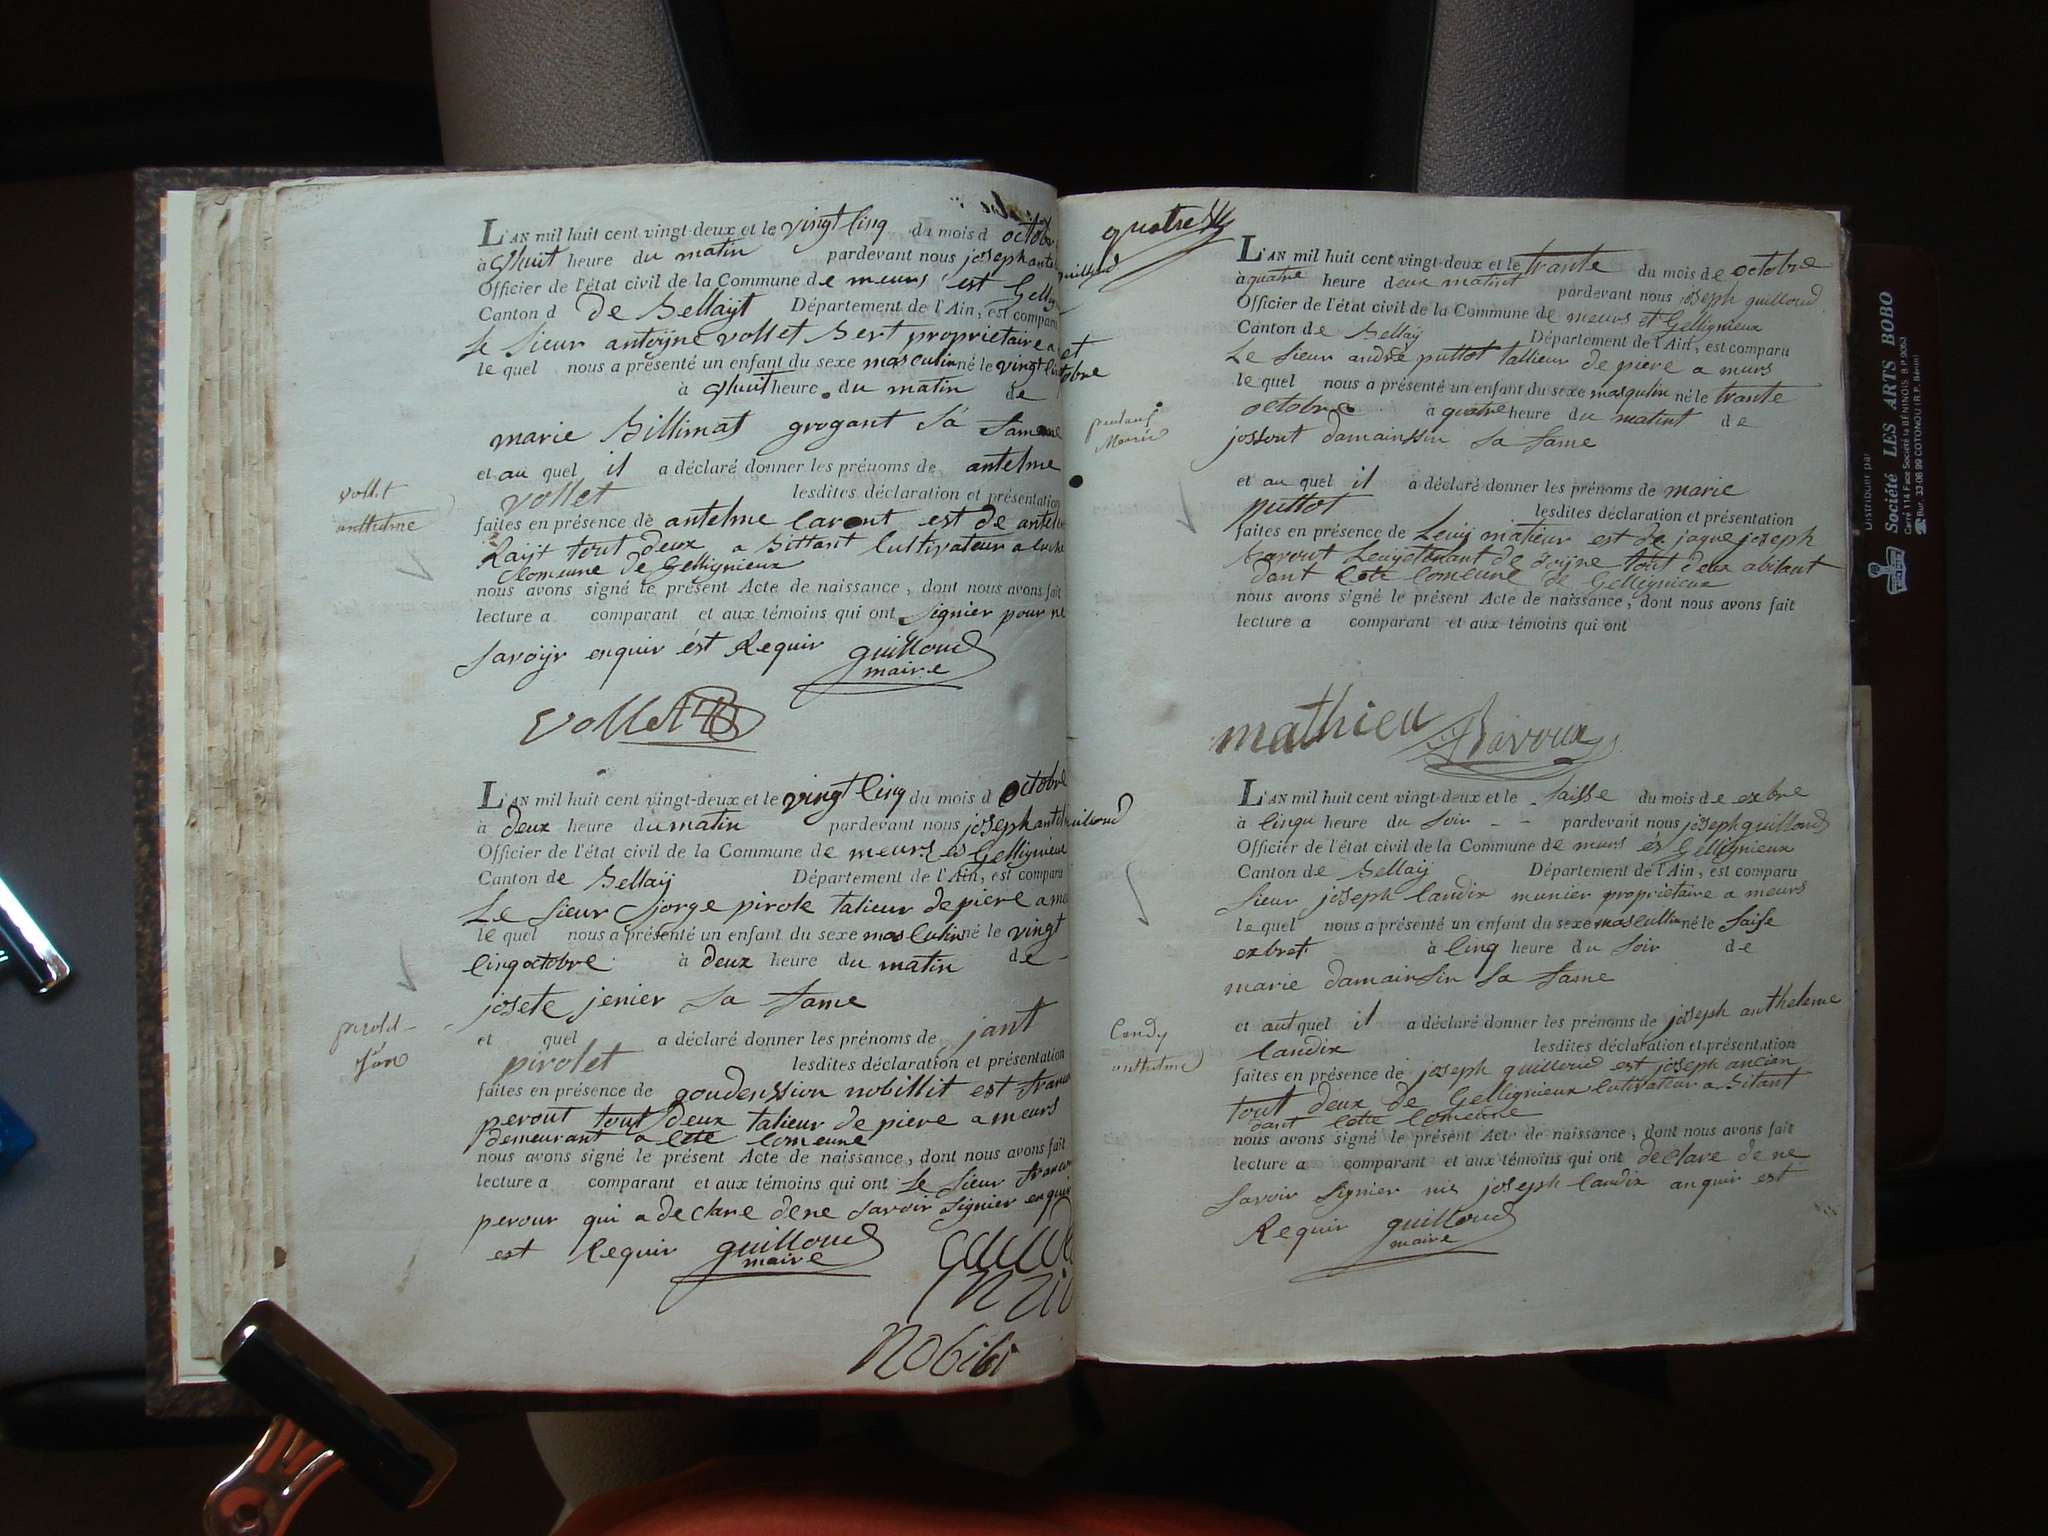 L'AN mil huit cent vingt-deux et le vingt linq du mois d octobr
à Qhuit heure du matin pardevant nous joseph ante guilloud
Officier de l'état civil de la Commune de meurs est Gelligni
Canton d de Bellaÿt Département de l'Ain, est comparu
Le Sieur antoÿne vollet Bert propriétaire a
le quel nous a présenté un enfant du sexe masculin né le vingt linq
à Qhuit heure du matin de
marie Billimat grogant Sa famme
et au quel il a déclaré donner les prénoms de antelme
vollet lesdites déclaration et présentation
faites en présence de antelme Caront est de antelm
Raÿt tout deux a Bittant Cultivateur a
Comeune de Gellignieux
nous avons signé le présent Acte de naissance, dont nous avons fait
lecture a comparant et aux témoins qui ont Signier pour ne
Savoÿr enquir ést Requir guilloud
maire
vollet
vollet
anthelme
L'AN mil huit cent vingt-deux et le vingt Cinq du mois d Octobre
à deux heure du matin pardevant nous joseph ant guilloud
Officier de l'état civil de la Commune de meurs és Gellignieux
Canton de Bellaÿ Département de l'Ain, est comparu
Le Sieur jorge pirole talieur de piere a me
le quel nous a présenté un enfant du sexe masculin né le vingt
Cinq octobre à deux heure du matin de
josete jenier Sa fame
et quel a déclaré donner les prénoms de jant
pirolet lesdites déclaration et présentation
faites en présence de goudenssion nobillit est francoi
perout tout deux talieur de piere a meurs
demeurant a Cete Comeune
nous avons signé le présent Acte de naissance, dont nous avons fait
lecture a comparant et aux témoins qui ont Le Sieur francoi
perour qui a declare dene Savoir Signier enquir
est Requir guilloud
maire
nobibi
quatre
L'AN mil huit cent vingt-deux et le trante du mois de octobre
à quatre heure deux matint pardevant nous joseph guilloud
Officier de l'état civil de la Commune de meurs et Gellignieux
Canton de Bellaÿ Département de l'Ain, est comparu
Le Sieur andre puttot tallieur de piere a murs
le quel nous a présenté un enfant du sexe masqulin né le trante
octobre à quatre heure du matint de
jossout damainssin Sa fame
et au quel il a déclaré donner les prénoms de marie
puttot lesdites déclaration et présentation
faites en présence de Leuÿ matieur est de jaque joseph
ravout tout deux abitant
dant Cete Comeune de Gellignieux
nous avons signé le présent Acte de naissance, dont nous avons fait
lecture a comparant et aux témoins qui ont
mathieu Ravoux
L'AN mil huit cent vingt-deux et le Saisse du mois de exbre
à Cinqu heure du Soir pardevant nous joseph guilloud
Officier de l'état civil de la Commune de murs és Gellignieux
Canton de Bellaÿ Département de l'Ain, est comparu
Sieur joseph Candix munier propriétaire a meurs
le quel nous a présenté un enfant du sexe mascullin né le Saise
exbret à Cinq heure du Soir de
marie damainsin Sa fame
et aut quel il a déclaré donner les prénoms de joseph antheleme
Candix lesdites déclaration et présentation
faites en présence de joseph guilloud est joseph ancian
tout deux de Gellignieux Cutivateur a Bitant
dant Cette Comeune
nous avons signé le présent Acte de naissance, dont nous avons fait
lecture a comparant et aux témoins qui ont declare de ne
Savoir Signier nis joseph Candix anquir est
Requir guilloud
maire
Candy
anthelme
Distribuer par
Société LES ARTS BOBO
Carré 114 Face Société la BÉNINOIS. B.P. 9063
Bur. 33 08 99 COTONOU (R.P. Bénin)